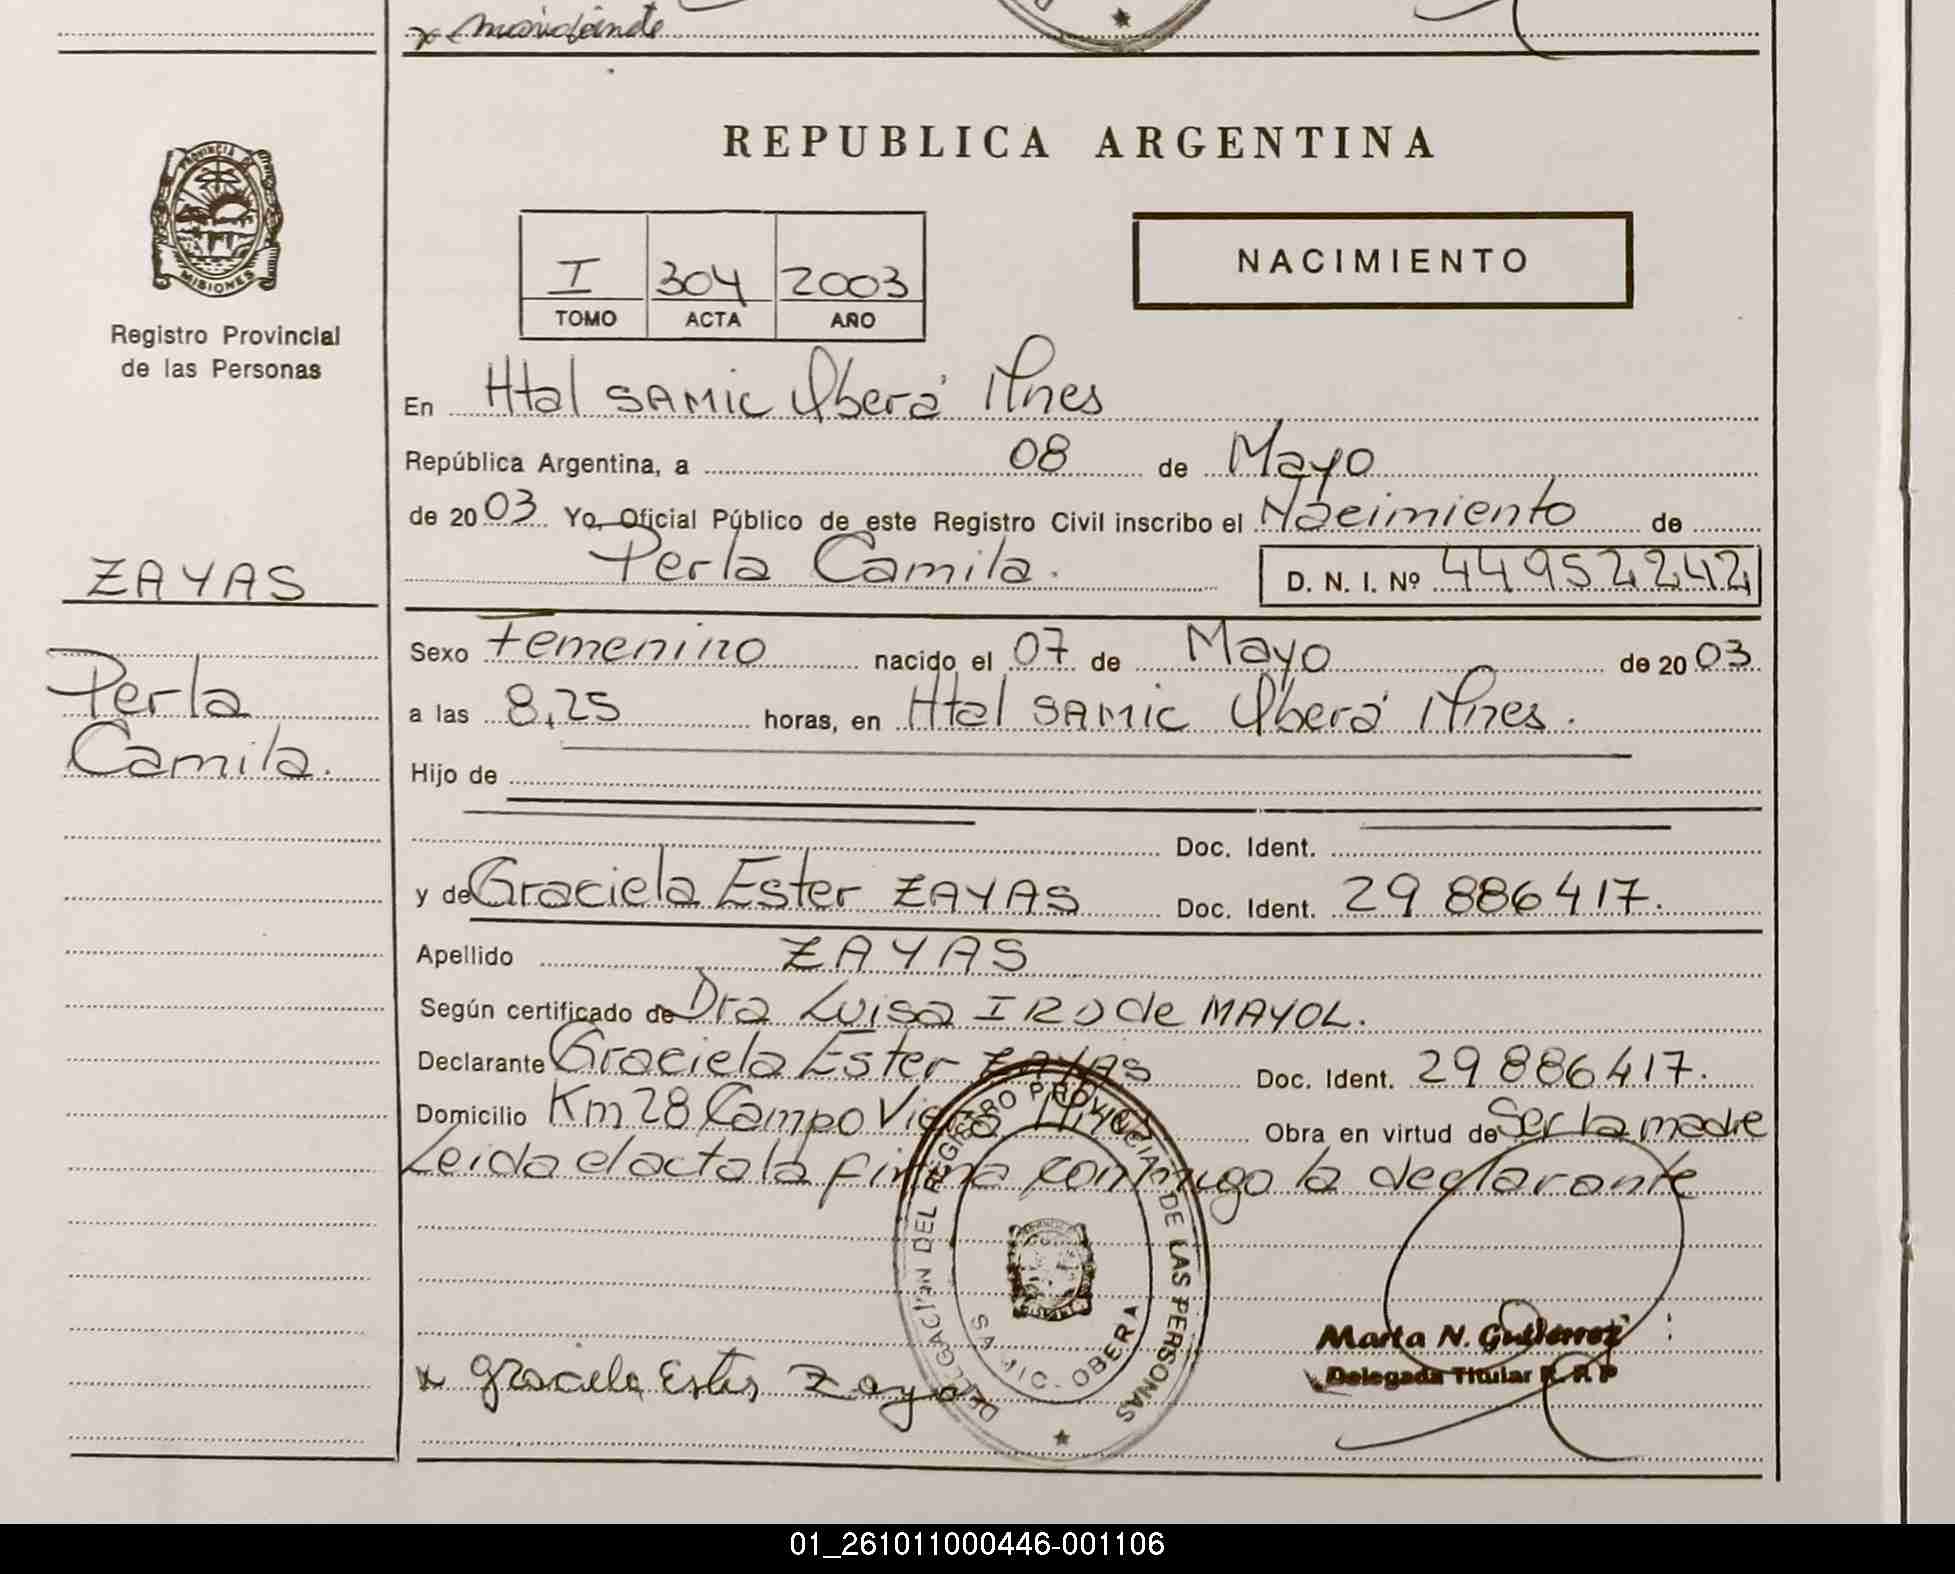 REPUBLICA ARGENTINA
PROVINCIA DE
MISIONES
Registro Provincial
de las Personas
I 304 2003
TOMO ACTA AÑO
NACIMIENTO
En Htal SAMIC Oberá Mnes
República Argentina, a 08 de Mayo
de 2003 Yo, Oficial Público de este Registro Civil inscribo el Nacimiento de
Perla Camila. D. N. I. Nº 44952242
ZAYAS
Perla
Camila.
Sexo Femenino nacido el 07 de Mayo de 2003
a las 8,25 horas, en Htal SAMIC Oberá Mnes.
Hijo de
Doc. Ident.
y de Graciela Ester ZAYAS Doc. Ident. 29 886417.
Apellido ZAYAS
Según certificado de Dra Luisa IRO de MAYOL.
Declarante Graciela Ester ZAYAS Doc. Ident. 29 886417.
Domicilio Km 28 Campo Viera Mnes Obra en virtud de Ser la madre
Leida el acta la firma conmigo la declarante
DELEGACION DEL REGISTRO PROVINCIAL DE LAS PERSONAS
OBERA
x Graciela Ester Zayas
Marta N. Gutierrez
Delegada Titular R. P. P
01_261011000446-001106